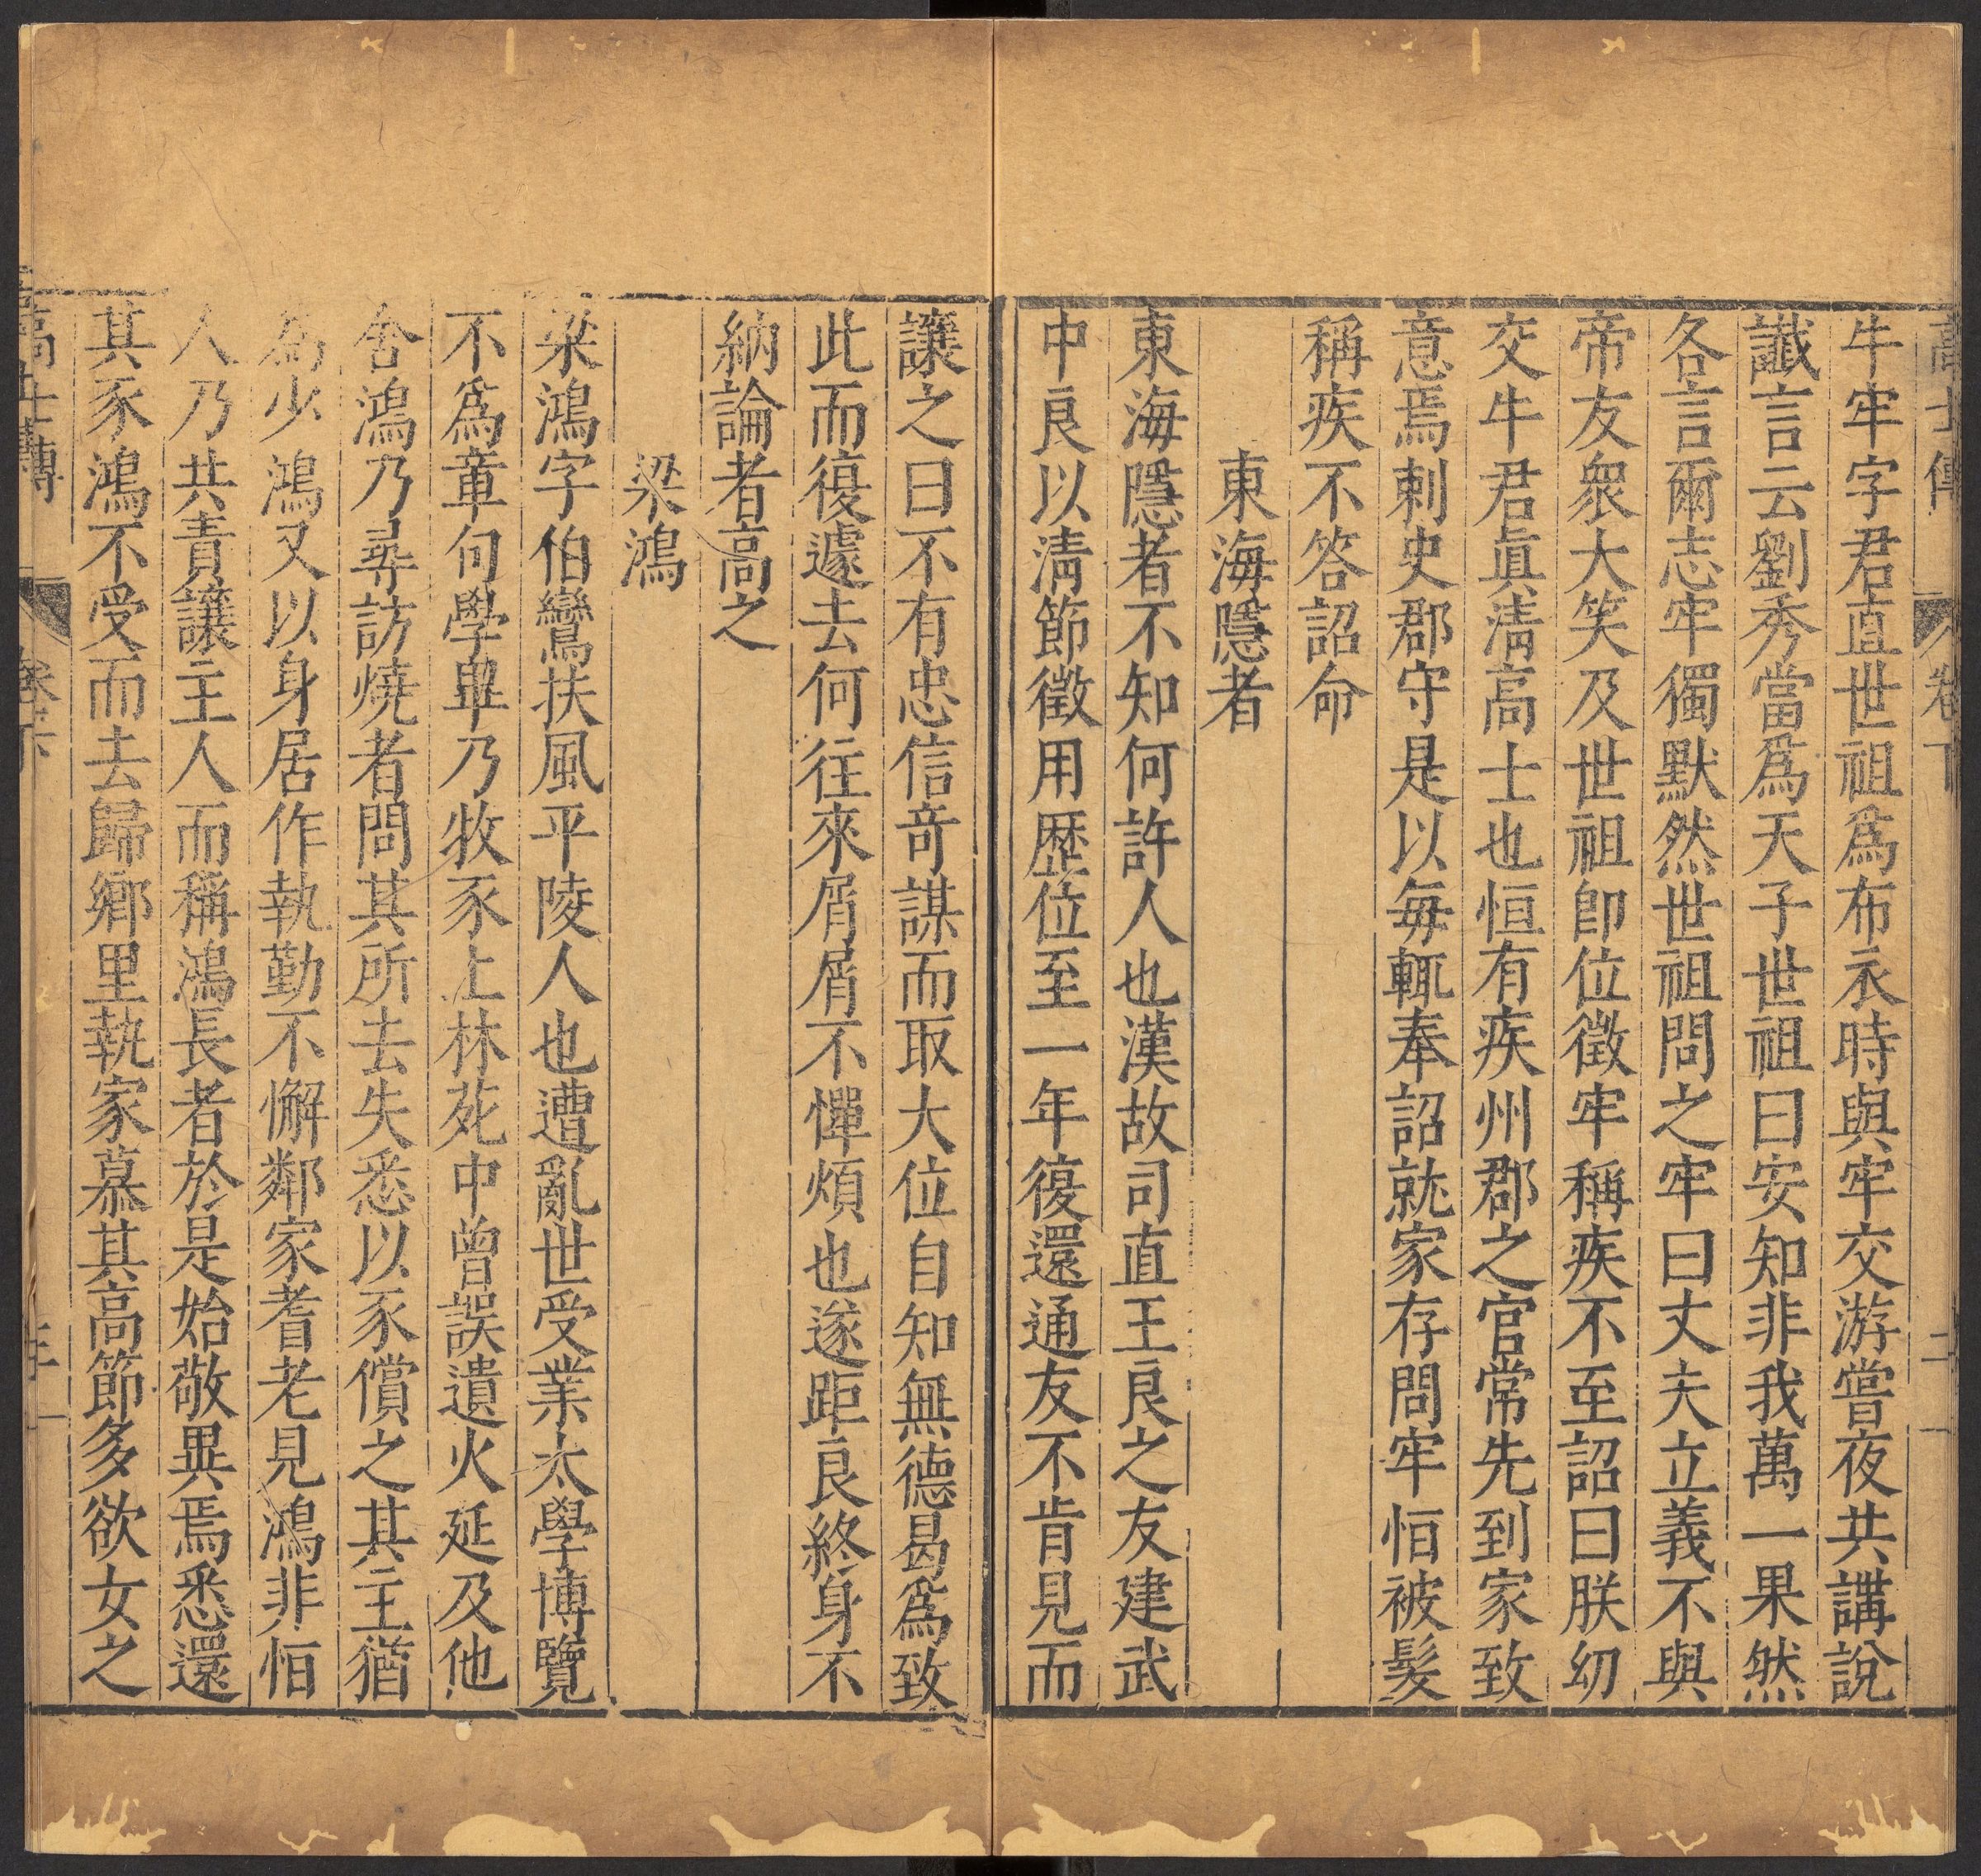 高士傳 卷下 二
牛牢字君直世祖爲布衣時與牢交游嘗夜共講說
讖言云劉秀當爲天子世祖曰安知非我萬一果然
各言爾志牢獨默然世祖問之牢曰丈夫立義不與
帝友衆大笑及世祖卽位徵牢稱疾不至詔曰朕幼
交牛君眞淸高士也恒有疾州郡之官常先到家致
意焉剌史郡守是以每輒奉詔就家存問牢恒被髮
稱疾不答詔命
東海隱者
東海隱者不知何許人也漢故司直王良之友建武
中良以淸節徵用歷位至一年復還通友不肯見而
讓之曰不有忠信奇謀而取大位自知無德曷爲致
此而復遽去何往來屑屑不憚煩也遂距良終身不
納論者高之
梁鴻
梁鴻字伯鸞扶風平陵人也遭亂世受業太學博覽
不爲章句學畢乃牧豕上林苑中曾誤遺火延及他
舍鴻乃尋訪燒者問其所去失悉以豕償之其主猶
爲少鴻又以身居作執勤不懈鄰家耆老見鴻非恒
人乃共責讓主人而稱鴻長者於是始敬異焉悉還
其豕鴻不受而去歸鄉里執家慕其高節多欲女之
高士傳 卷下